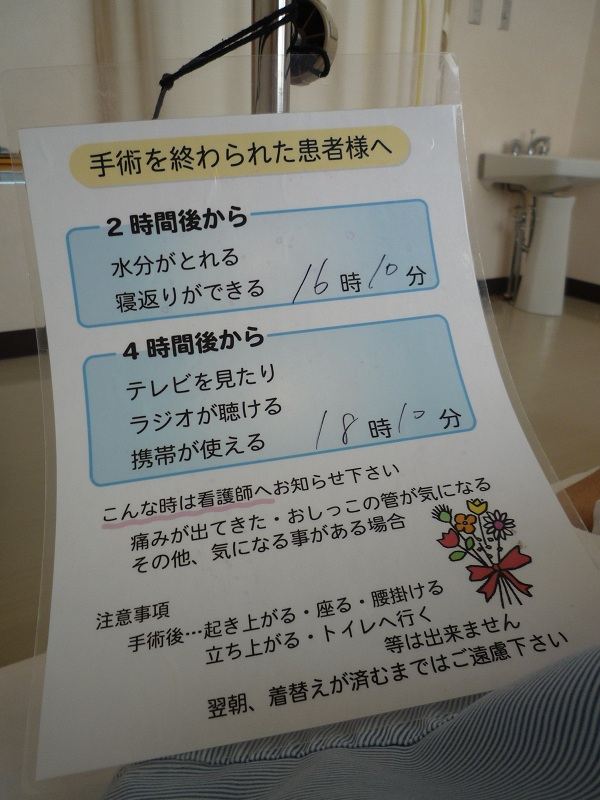 手術を終わられた患者様へ
2時間後から
水分がとれる
寝返りができる 16時10分
4時間後から
テレビを見たり
ラジオが聴ける
携帯が使える 18時10分
こんな時は看護師へお知らせ下さい
痛みが出てきた・おしっこの管が気になる
その他、気になる事がある場合
注意事項
手術後…起き上がる・座る・腰掛ける
立ち上がる・トイレへ行く
等は出来ません
翌朝、着替えが済むまではご遠慮下さい